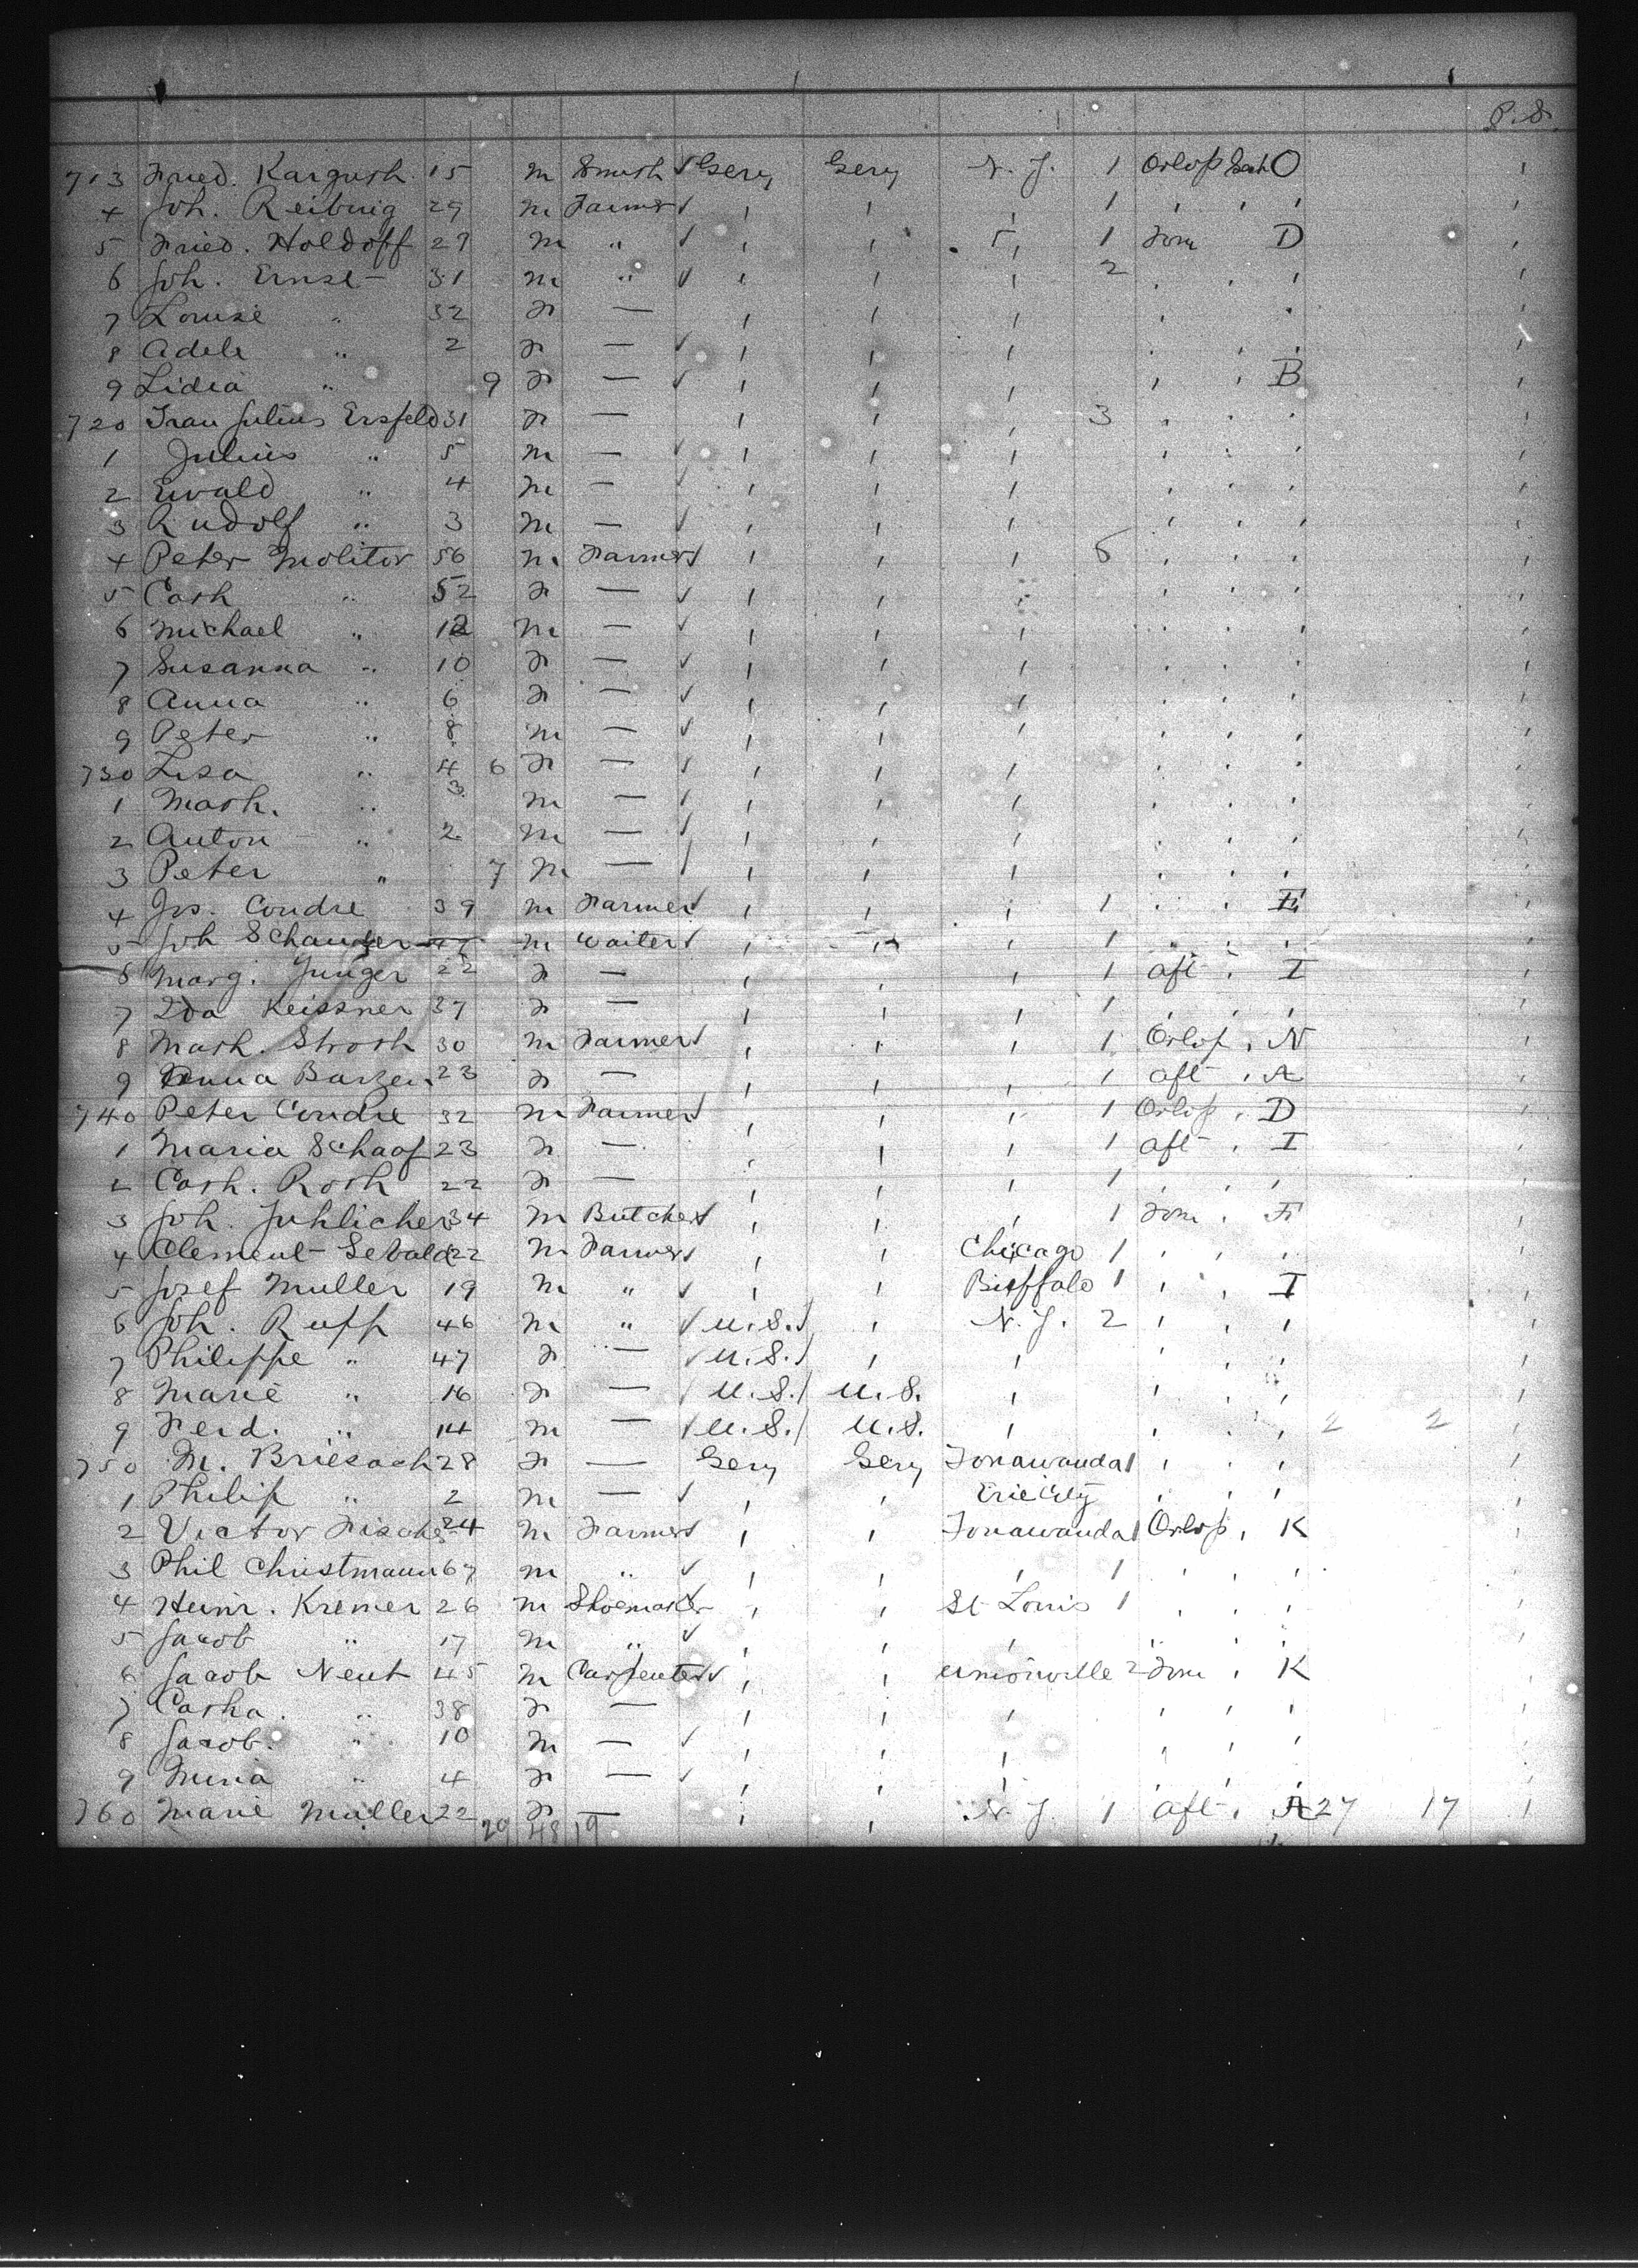 P.S.
713 Fried. Kargush 15 m Smith √ Gery Gery N.Y. 1 Orlop O
4 Joh. Reibnig 29 m Farmer √ 1
5 Fried. Holdoff 29 m " √ 1 D
6 Joh. Ernst 31 m " √ 2
7 Louise " 32 F —
8 Adele " 2 F — √
9 Lidia " 9 F — √ B
720 Frau Julius Ersfeld 31 F — 3
1 Julius " 5 m — √
2 Ewald " 4 m — √
3 Rudolf " 3 m — √
4 Peter Molitor 56 m Farmer √ 5
5 Cath " 52 F — √
6 Michael " 12 m — √
7 Susanna " 10 F — √
8 Anna " 6 F — √
9 Peter " 8 m — √
730 Lisa " 4 6 F — √
1 Math. " 3 m — √
2 Anton " 2 m — √
3 Peter " 7 m — /
4 Jos. Condre 39 m Farmer √ 1
5 Joh m Waiter √ 1
6 Marg. Junger 22 F — 1 aft I
7 Ida Keissner 37 F — 1
8 Math. Stroth 30 m Farmer √ 1 Orlop N
9 Anna Barzen 23 F — 1 aft A
740 Peter Condre 32 m Farmer √ 1 Orlop D
1 Maria Schaaf 23 F — 1 aft I
2 Cath. Roth 22 F — 1
3 Joh. Juhlicher 34 m Butcher √ 1
4 Clement Sebald 22 m Farmer √ Chicago 1
5 Josef Muller 19 m " √ Buffalo 1 I
6 Joh. Rupp 46 m " √ U.S. N.Y. 2
7 Philippe " 47 F — √ U.S.
8 Marie " 16 F — U.S. U.S.
9 Ferd. " 14 m — √ U.S. U.S. 2 2
750 M. Briesach 28 F — Gery Gery Tonawanda 1
1 Philip " 2 m — √ Erie City
2 Victor Fischer 24 m Farmer √ Tonawanda 1 Orlop K
3 Phil Christmann 67 m " √ 1
4 Heinr. Kremer 26 m Shoemaker St Louis 1
5 Jacob " 17 m " √
6 Jacob Neut 45 m Carpenter √ Unionville 2 K
7 Catha. " 38 F —
8 Jacob. " 10 m — √
9 Mina " 4 F — √
760 Marie Muller 22 F — N.Y. 1 aft A 27 17
29 48 19